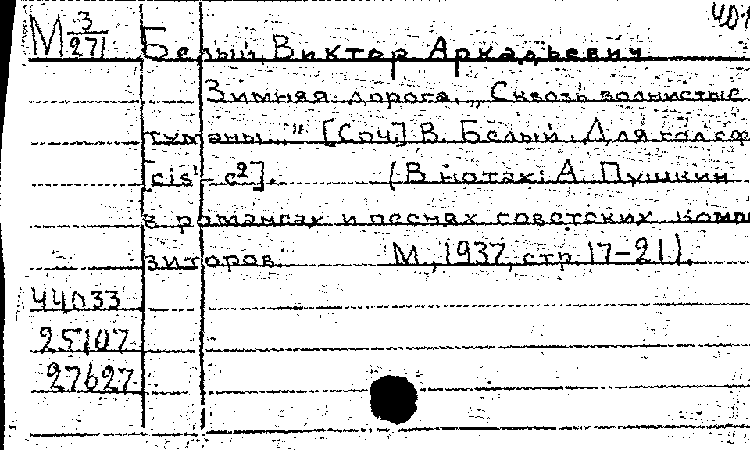 401
М 3/271 Белый, Виктор Аркадьевич
Зимняя дорога. „Сквозь волнистые
туманы..." [Соч.] В. Белый. Для гол. с ф
[cis¹ - c²]. (В нотах: А. Пушкин
в романсах и песнях советских комп
зиторов. М., 1937, стр. 17-21).
44033
25107
27627